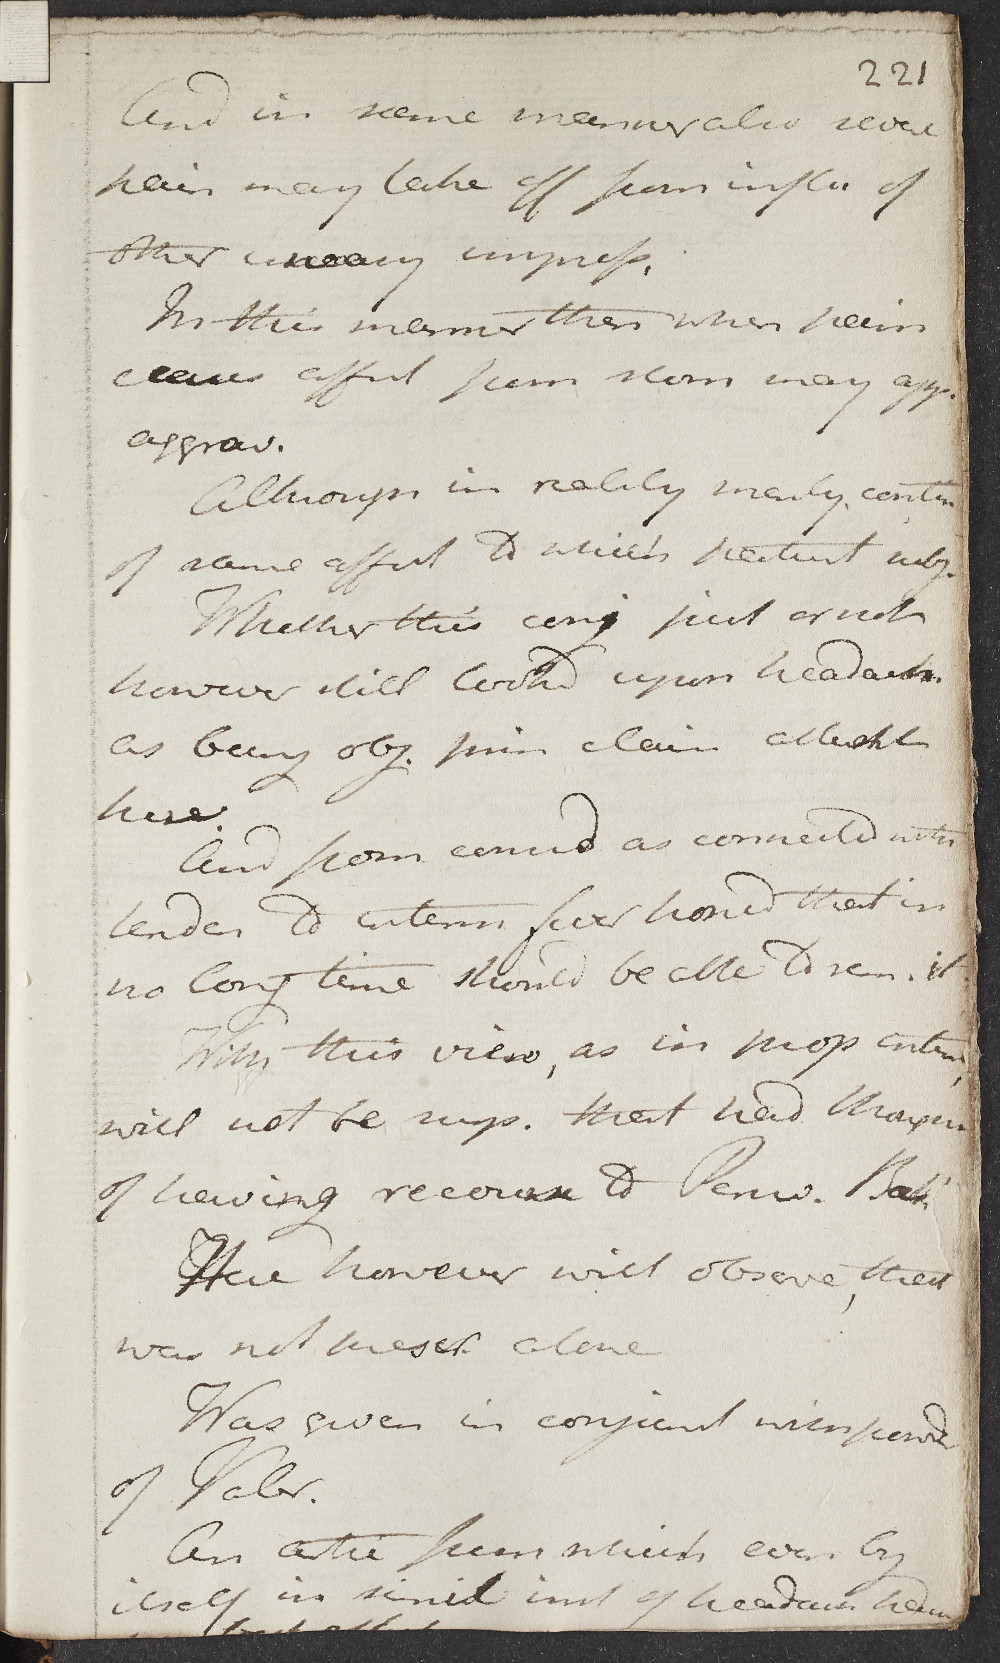 221
And in same manner also sever
pain may take off from influ of
other uneasy impress.
In this manner then when pain
ceases affect from stom may app.
aggrav.
Although in reality merely contin
of same affect to which patient subj.
Whether this conj just or not
however still looked upon headach.
as being obj. prin claim attent
here.
And from conn'd as connected with
tenden to interm fever hoped that in
no long time should be able to rem. it
With this view, as in prop interm,
will not be sup. that had thoughts
of having recourse to Peruv. Bark
Here however will observe, that
was not prescr. alone
Was given in conjunct with powder
of Valer.
An artic from which even by
itself in simil inst of headach have
best effect